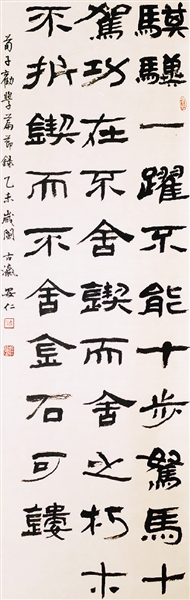 騏驥一躍不能十步駑馬十
駕功在不舍鍥而舍之朽木
不折鍥而不舍金石可鏤
荀子勸學篇節錄乙未歲闌古瀛安仁